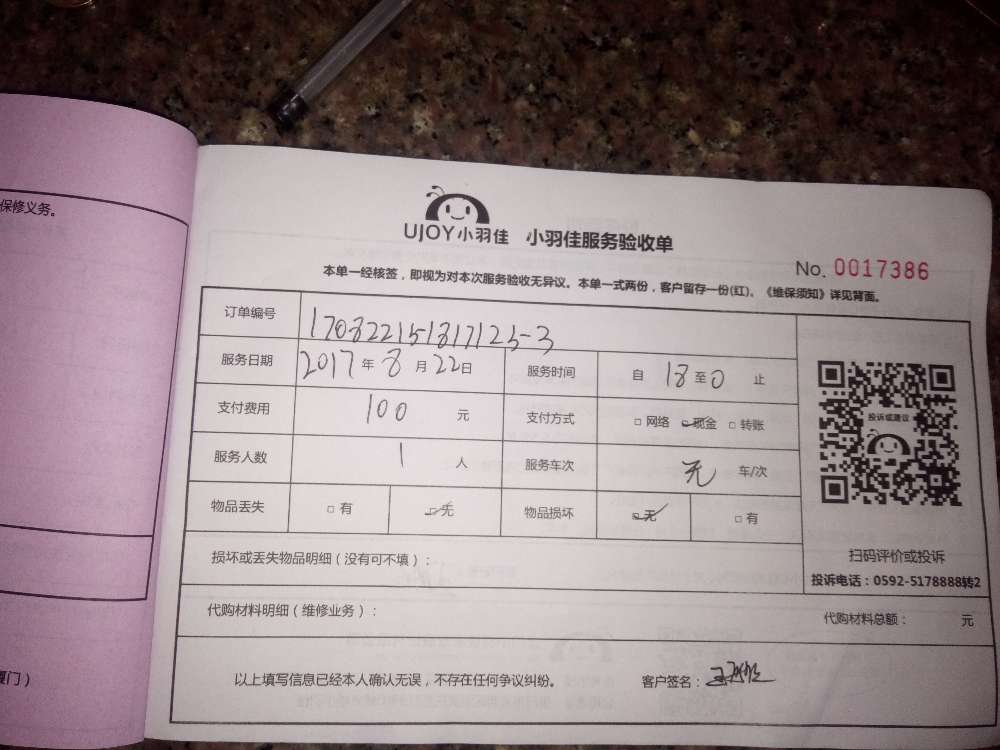 保修义务。
厦门）
UJOY小羽佳 小羽佳服务验收单
No. 0017386
本单一经核签，即视为对本次服务验收无异议。本单一式两份，客户留存一份(红)、《维保须知》详见背面。
订单编号 170822151817125-3
服务日期 2017年8月22日 服务时间 自 18 至 0 止
支付费用 100 元 支付方式 □网络 □现金 □转账
服务人数 1 人 服务车次 无 车/次
物品丢失 □有 □无 物品损坏 □无 □有
投诉或建议
扫码评价或投诉
投诉电话：0592-5178888转2
损坏或丢失物品明细（没有可不填）：
代购材料明细（维修业务）： 代购材料总额： 元
以上填写信息已经本人确认无误，不存在任何争议纠纷。 客户签名：